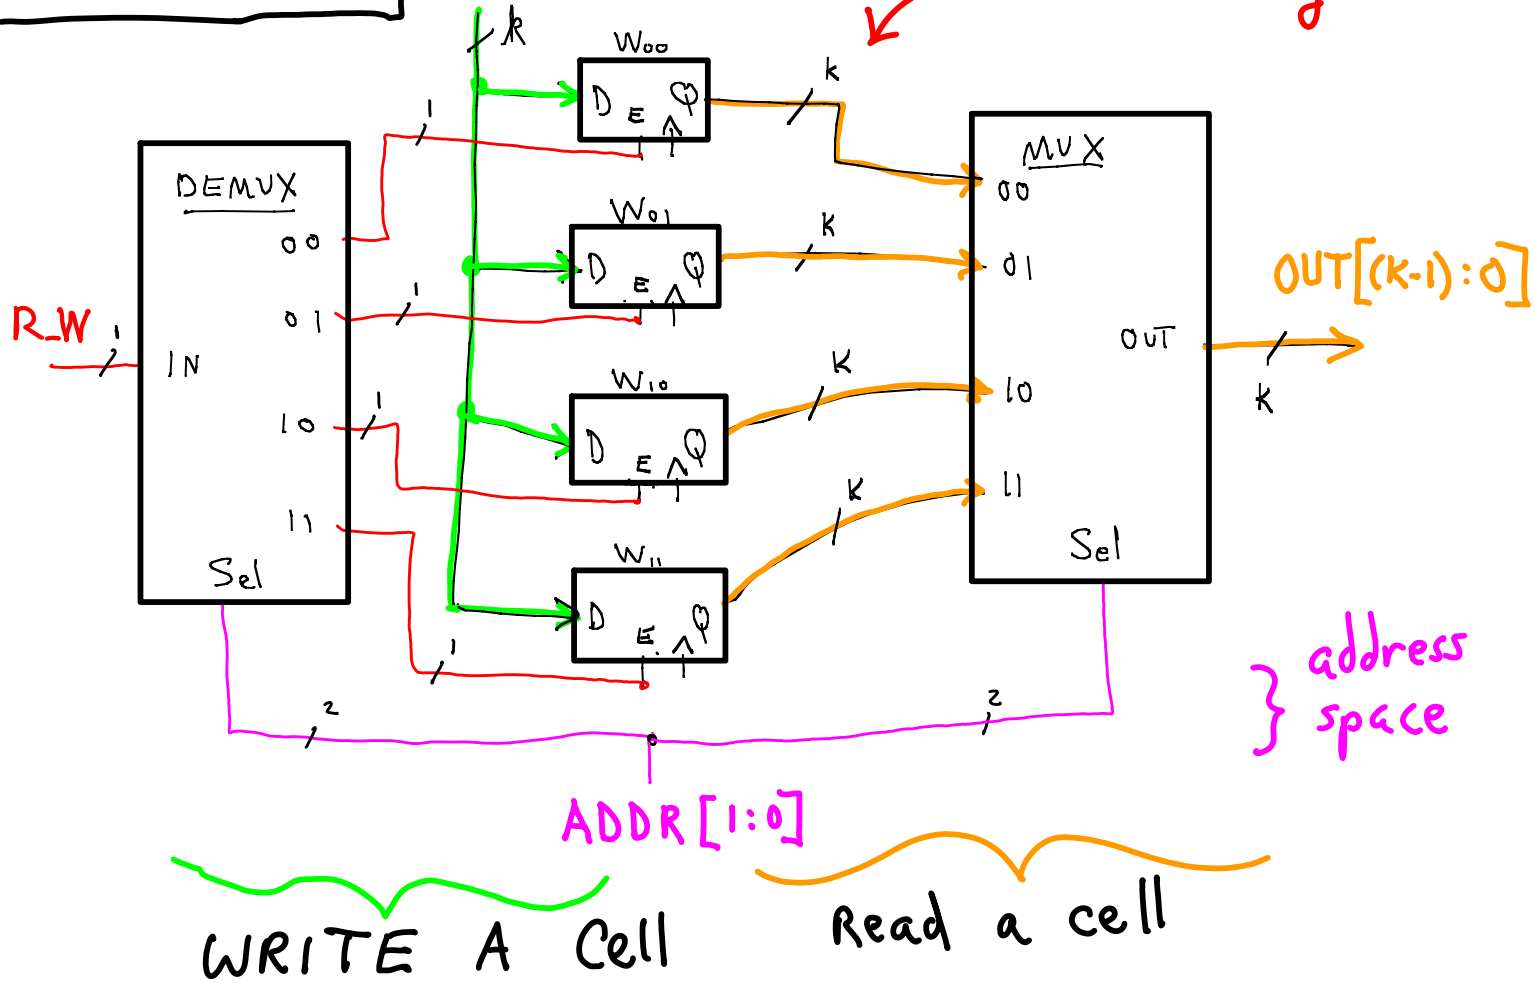 k
W00
D E Q
K
1
DEMUX
00
01
10
11
IN
Sel
R_W
1
1
1
1
W01
D E Q
K
W10
D E Q
K
W11
D E Q
K
MUX
00
01
10
11
OUT
Sel
OUT[(K-1):0]
K
2
2
ADDR[1:0]
address
space
WRITE A Cell
Read a cell